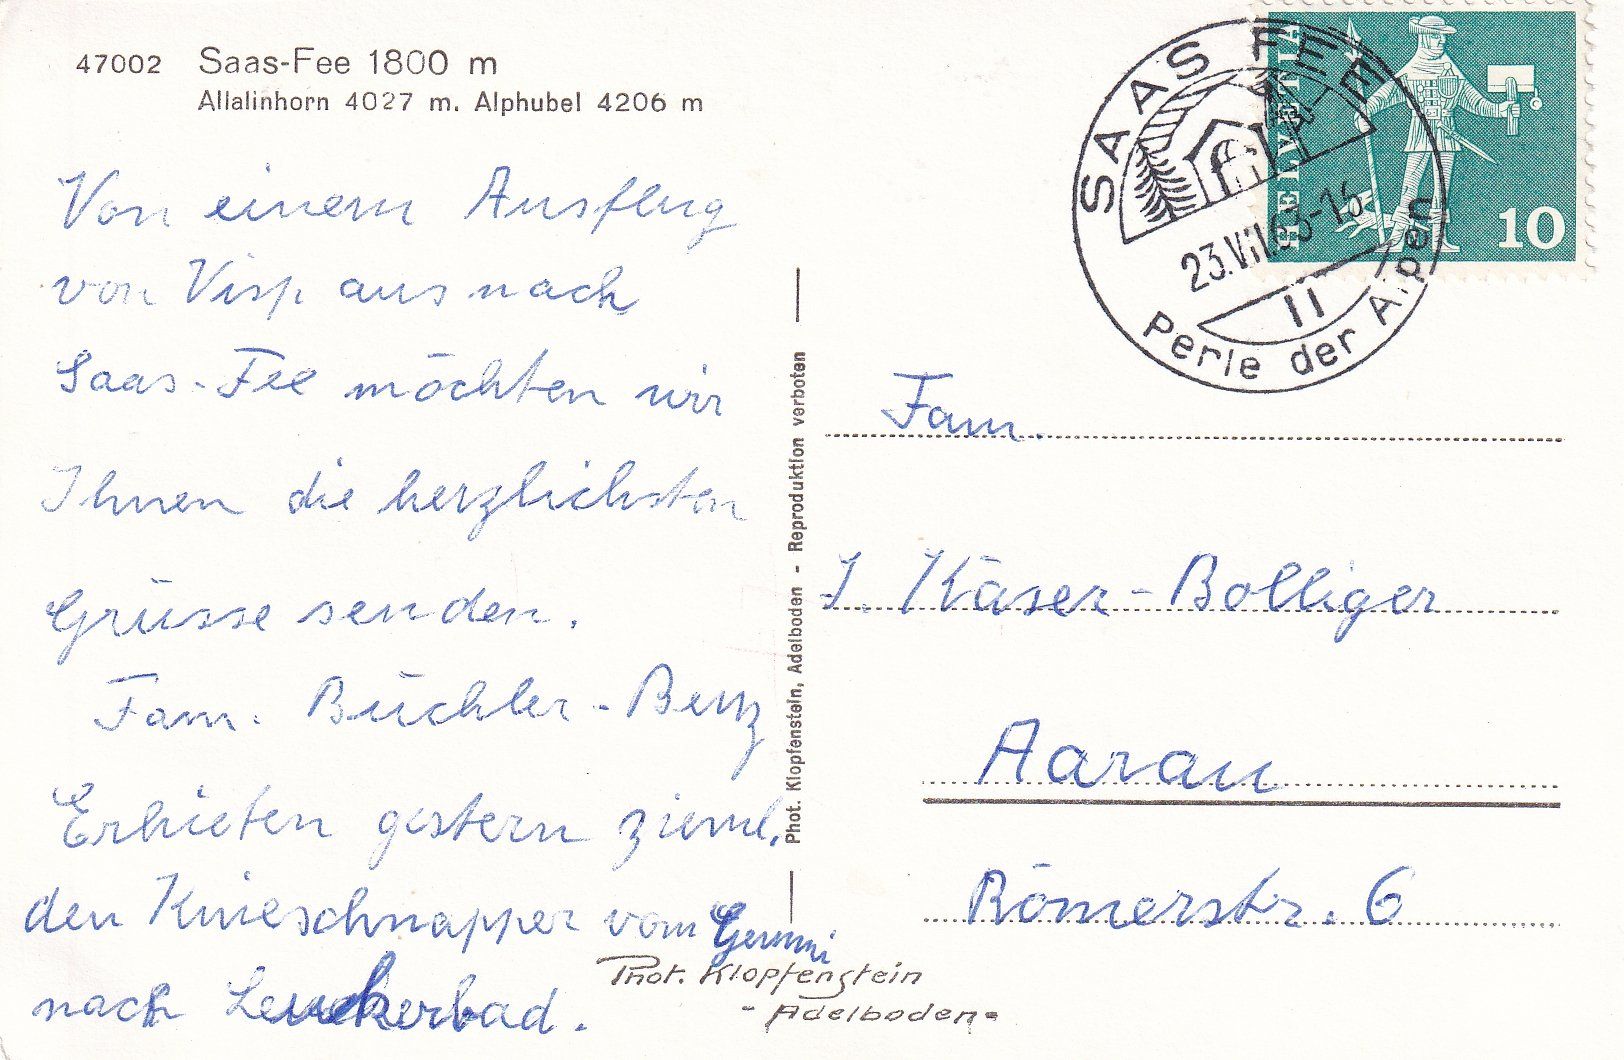 47002 Saas-Fee 1800 m
Allalinhorn 4027 m. Alphubel 4206 m
Von einem Ausflug
von Visp aus nach
Saas-Fee möchten wir
Ihnen die herzlichsten
Grüsse senden.
Fam. Büchler-Benz
Erhielten gestern zieml.
den Knieschnapper vom Gemmi
nach Leukerbad.
Phot. Klopfenstein, Adelboden - Reproduktion verboten
Phot. Klopfenstein
- Adelboden -
SAAS FEE
23.VII.63-16
II
Perle der Alpen
HELVETIA
10
Fam.
J. Käser-Bolliger
Aarau
Römerstr. 6